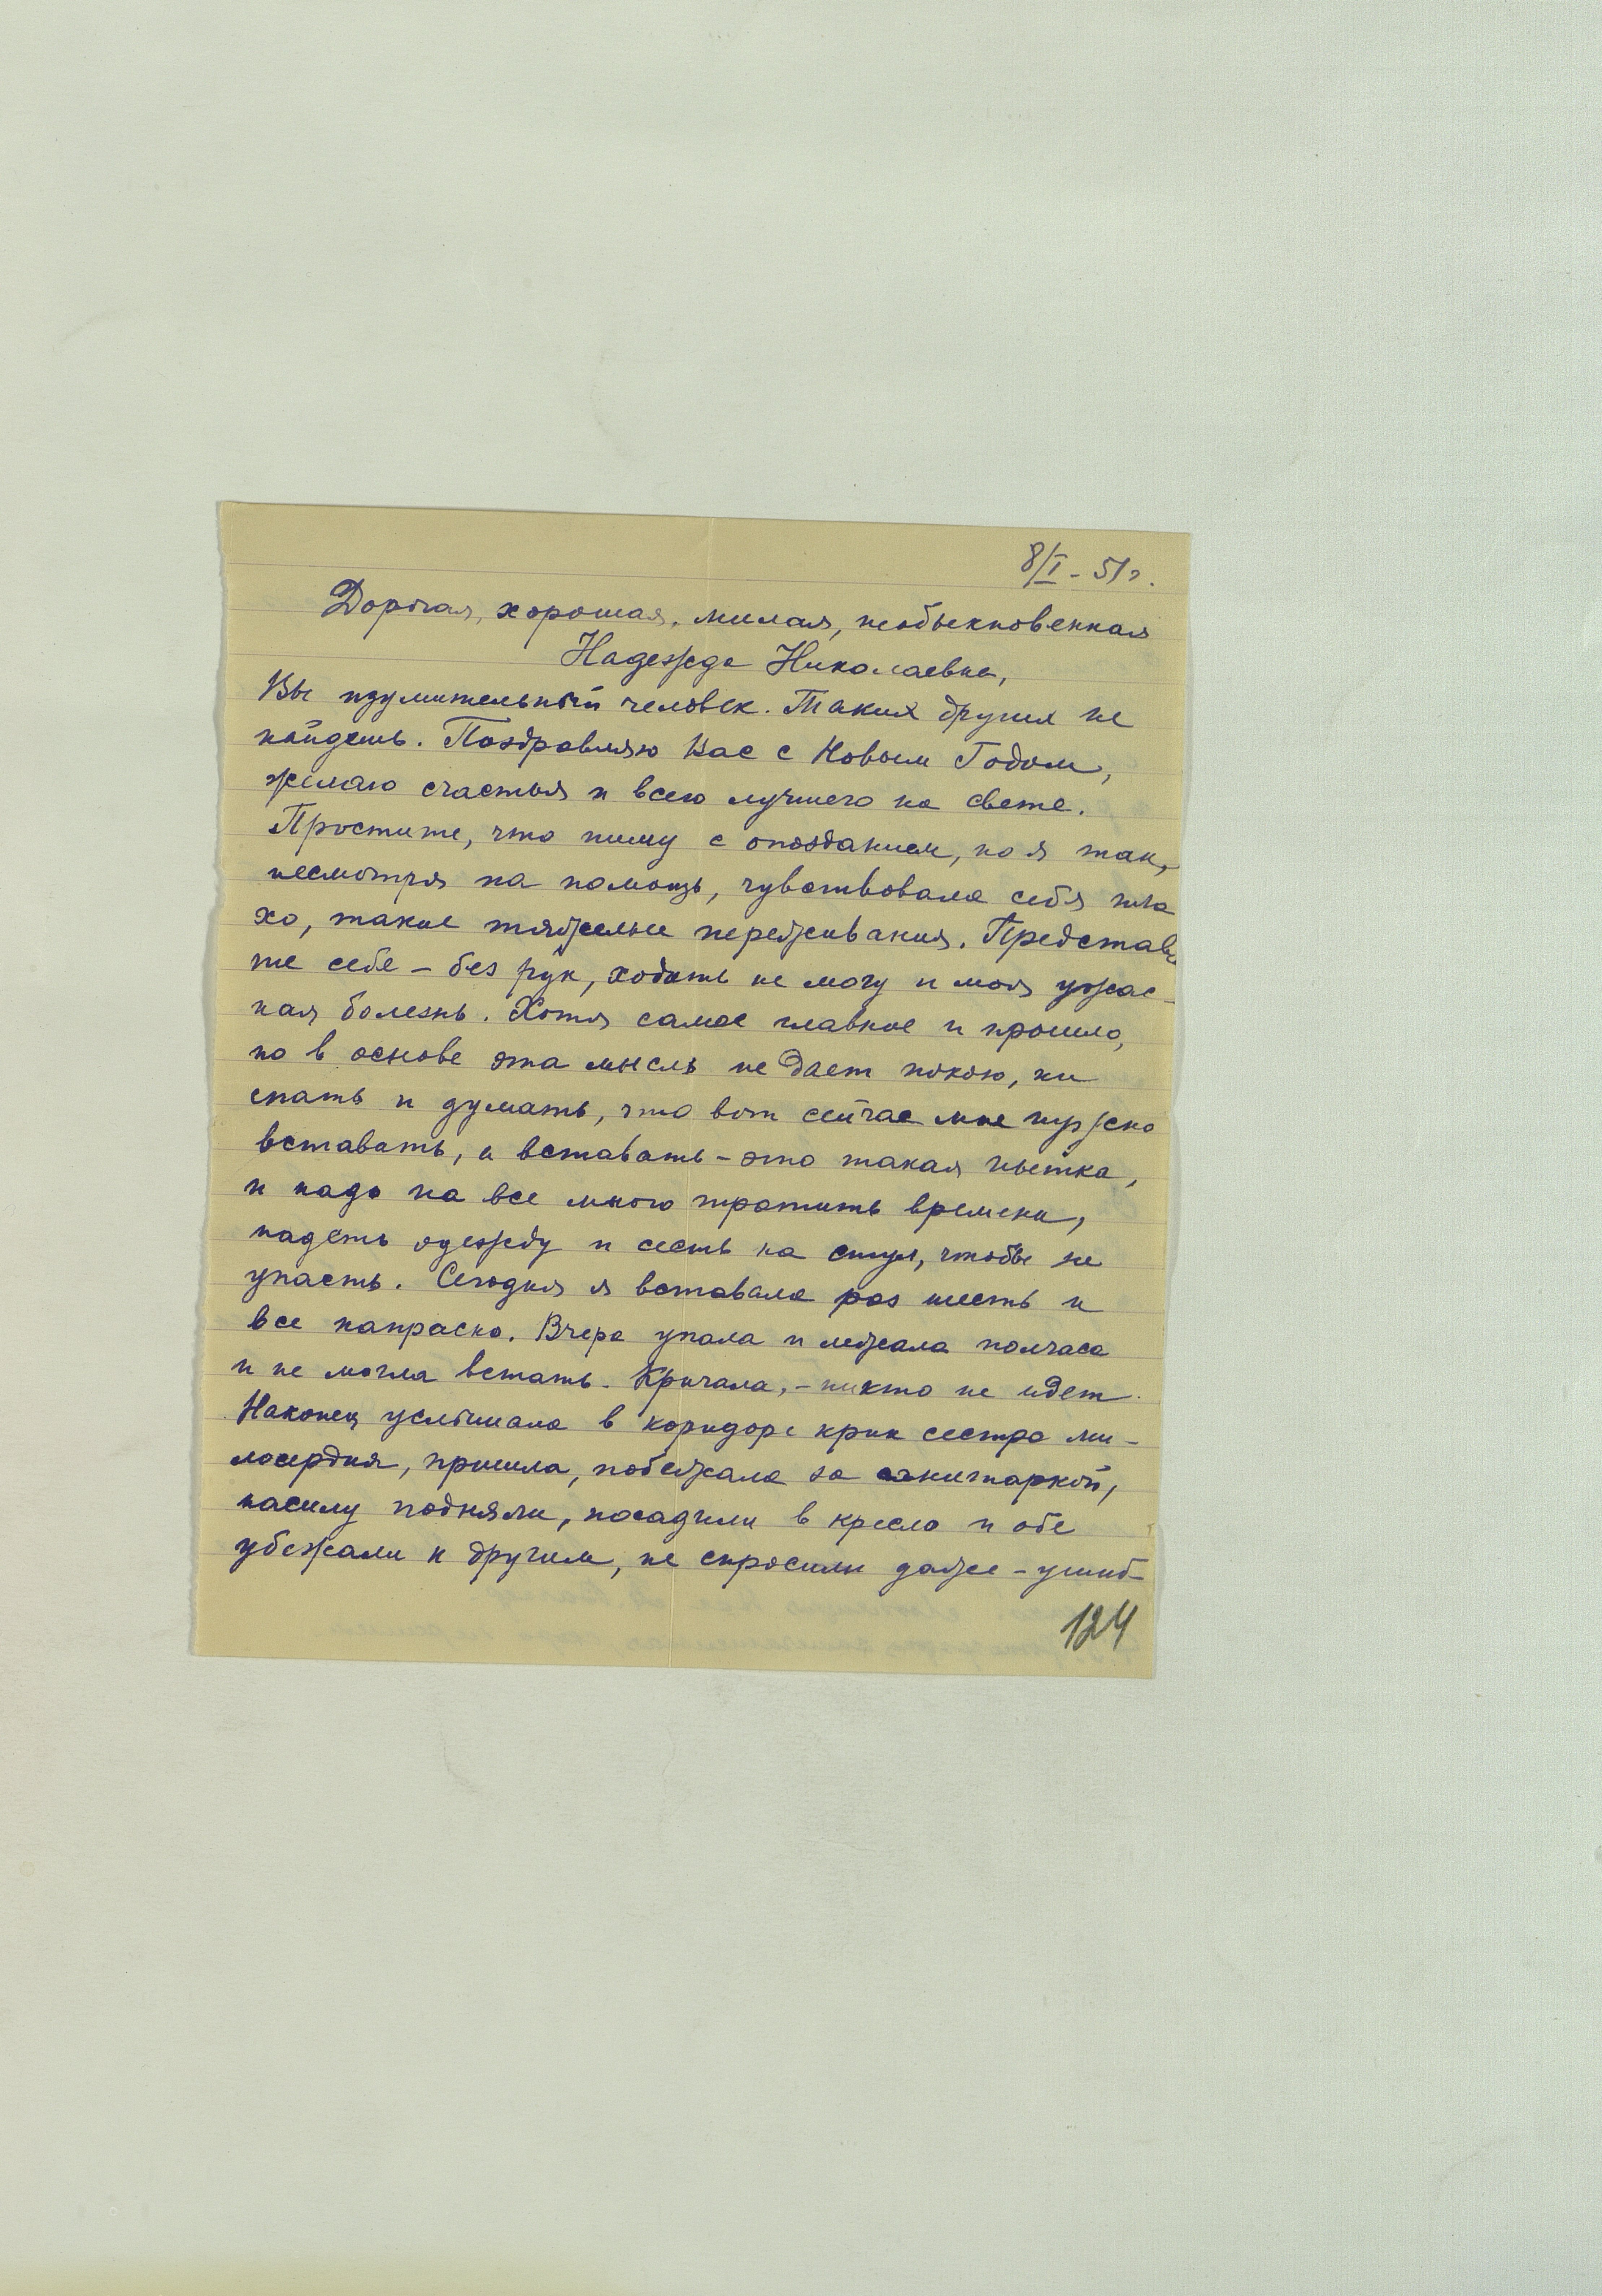 8/I - 51 г.
Дорогая, хорошая, милая, необыкновенная
Надежда Николаевна,
Вы изумительный человек. Таких других не
найдешь. Поздравляю Вас с Новым Годом,
желаю счастья и всего лучшего на свете.
Простите, что пишу с опозданием, но я так,
несмотря на помощь, чувствовала себя пло
хо, такие тяжелые переживания. Представь
те себе – без рук, ходить не могу и моя ужас-
ная болезнь. Хотя самое главное и прошло,
но в основе эта мысль не дает покою, ни
спать и думать, что вот сейчас мне нужно
вставать, а вставать – это такая пытка,
и надо на все много тратить времени,
надеть одежду и сесть на стул, чтобы не
упасть. Сегодня я вставала раз шесть и
все напрасно. Вчера упала и лежала полчаса
и не могла встать. Кричала, – никто не идет.
Наконец услышала в коридоре крик сестра ми-
лосердия, пришла, побежала за санитаркой,
насилу подняли, посадили в кресло и обе
убежали к другим, не спросили даже – ушиб-
124